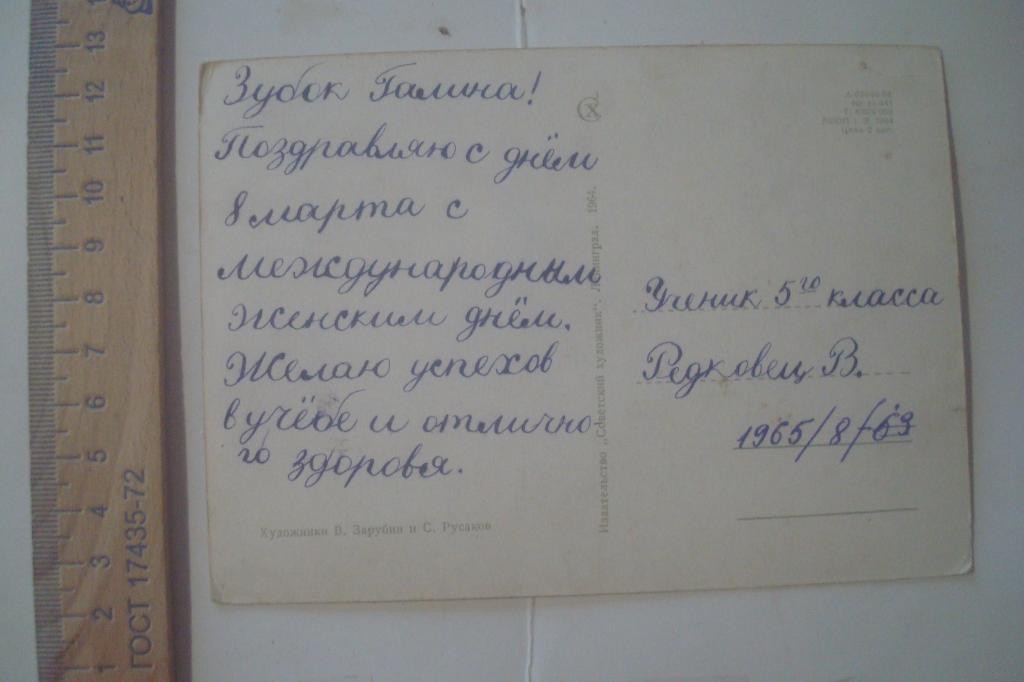 Зубок Галина!
Поздравляю с днём
8 марта с
международным
женским днём.
Желаю успехов
в учёбе и отлично
го здоровя.
Художники В. Зарубин и С. Русаков
Издательство „Советский художник". Ленинград. 1964.
Ученик 5го класса
Редковец В.
1965/8/
ГОСТ 17435-72
1
2
3
4
5
6
7
8
9
10
11
12
13